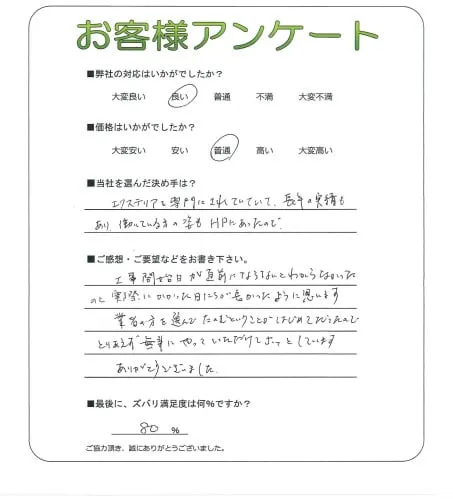 お客様アンケート
■弊社の対応はいかがでしたか？
大変良い 良い 普通 不満 大変不満
■価格はいかがでしたか？
大変安い 安い 普通 高い 大変高い
■当社を選んだ決め手は？
エクステリアを専門にされていていて、長年の実績も
あり、働いている方の姿もHPにあったので
■ご感想・ご要望などをお書き下さい。
工事開始日が直前にならないとわからなかった
のと実際にかかった日にちが長かったように思います
業者の方を選んでたのむということがはじめてだったので
とりあえず無事にやっていただけてほっとしています
ありがとうございました。
■最後に、ズバリ満足度は何％ですか？
80 ％
ご協力頂き、誠にありがとうございました。